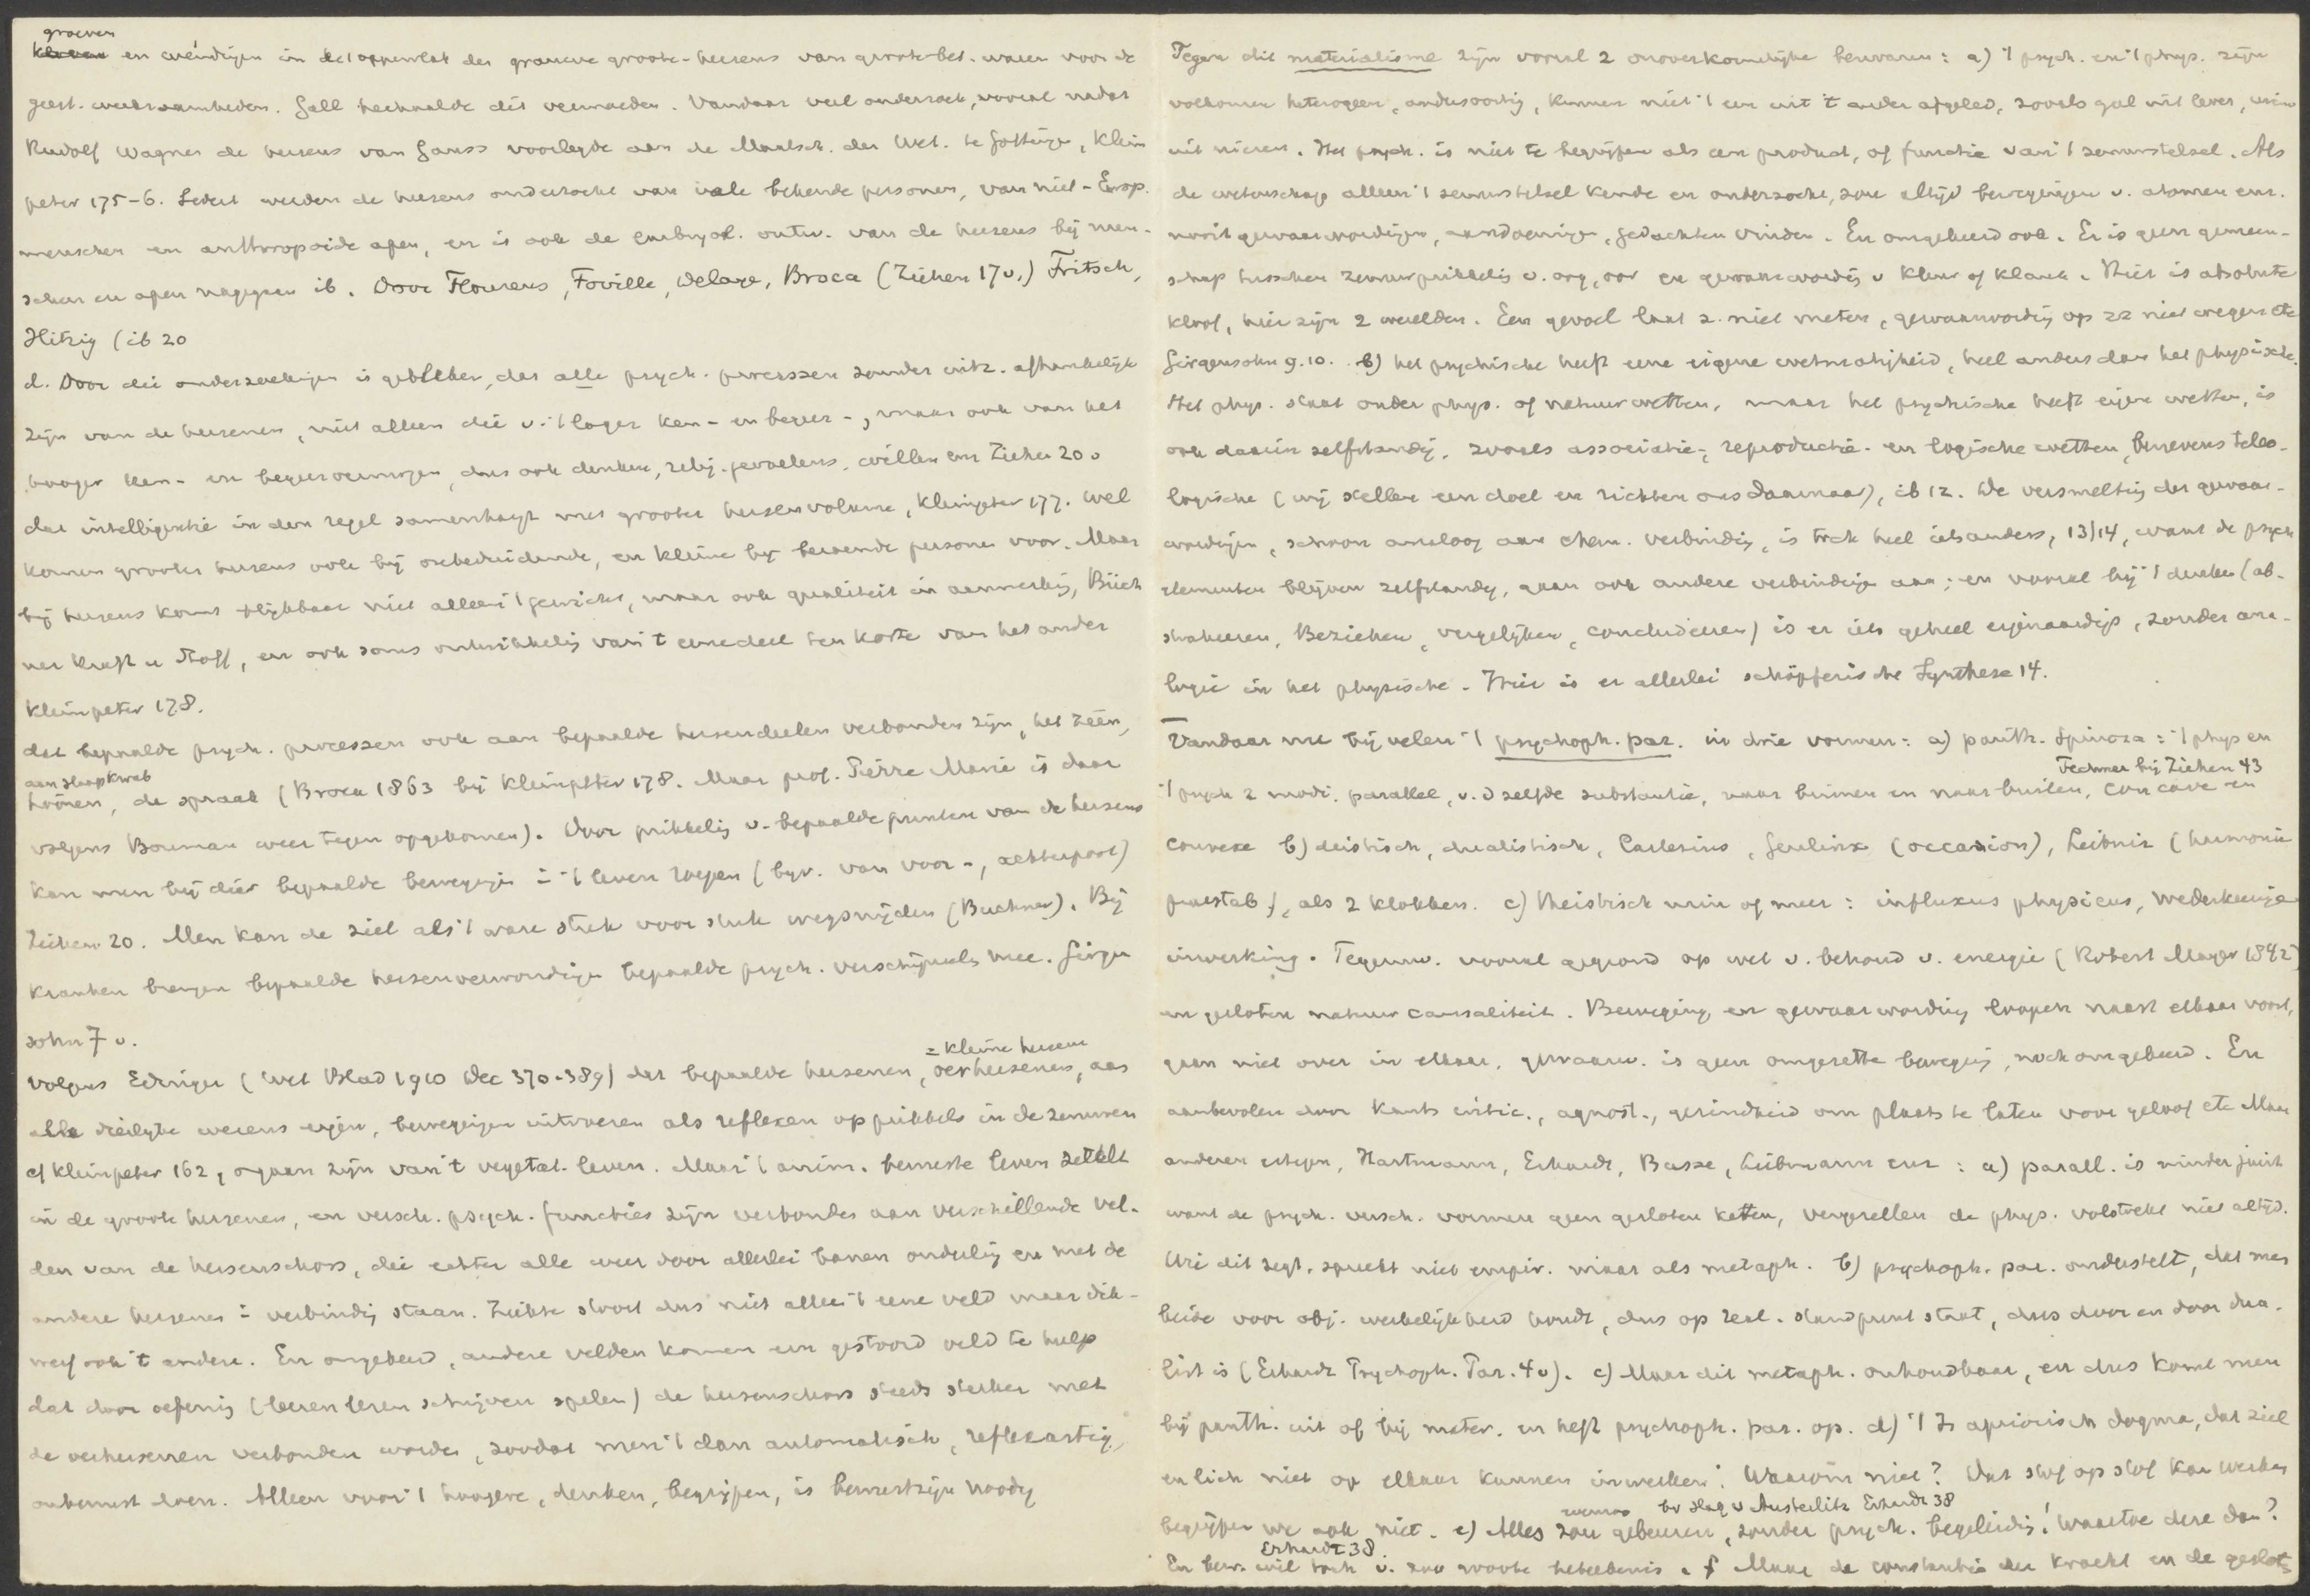 groeven
en windingen in het oppervlak der grauwe groote-hersens van groote bet. waren voor de
geest. werkzaamheden. Gall herhaalde dit vermoeden. Vandaar veel onderzoek, vooral nadat
Rudolf Wagner de hersens van Gauss voorlegde aan de Maatsch. der Wet. te Gottingen, Klein
peter 175-6. Sedert werden de hersens onderzocht van vele bekende personen, van niet-Europ.
menschen en anthropoide apen, en is ook de embryol. ontw. van de hersens bij men-
schen en apen nagegaan ib. Door Flourens, Foville, Delaye, Broca (Ziehen 17 v.) Fritsch,
Hitzig (ib 20
d. Door die onderzoekingen is gebleken, dat alle psych. processen zonder uitz. afhankelijk
zijn van de hersenen, niet alleen die v. 't lager ken- en begeer-, maar ook van het
hooger ken- en begeervermogen, dus ook denken, relig. gevoelens, willen enz Ziehen 20.
dat intelligentie in den regel samenhangt met grooter hersenvolume, Kleinpeter 177. Wel
komen groote hersens ook bij onbeduidende, en kleine bij beroemde personen voor. Maar
bij hersens komt blijkbaar niet alleen 't gewicht, maar ook qualiteit in aanmerking, Büch
ner Kraft u Stoff, en ook soms ontwikkeling van 't eene deel ten koste van het ander
Kleinpeter 178.
dat bepaalde psych. processen ook aan bepaalde hersendeelen verbonden zijn, het zien,
aan slaapkwab
hooren, de spraak (Broca 1863 bij Kleinpeter 178. Maar prof. Pierre Marie is daar
volgens Bouman weer tegen opgekomen). Door prikkeling v. bepaalde punten van de hersens
kan men bij dier bepaalde bewegingen in 't leven roepen (bijv. van voor-, achterpoot)
Ziehen 20. Men kan de ziel als 't ware stuk voor stuk wegsnijden (Buchner). Bij
kranken brengen bepaalde hersenverwondingen bepaalde psych. verschijnsels mee. Girgen
sohn 7 v.
= kleine hersens
Volgens Edinger (Wet Blad 1910 Dec 370-389) dat bepaalde hersenen, oerhersenen, aan
alle dierlijke wezens eigen, bewegingen uitvoeren als reflexen op prikkels in de zenuwen
cf Kleinpeter 162, orgaan zijn van 't vegetat. leven. Maar 't anim. bewuste leven zetelt
in de groote hersenen, en versch. psych. functies zijn verbonden aan verschillende vel-
den van de hersenschors, die echter alle weer door allerlei banen onderling en met de
andere hersenen in verbinding staan. Ziekte stoort dus niet alleen 't eene veld maar dik-
werf ook 't andere. En omgekeerd, andere velden komen een gestoord veld te hulp
dat door oefening (leeren lezen schrijven spelen) de hersenschors steeds sterker met
de oerhersenen verbonden worden, zoodat men 't dan automatisch, reflexartig,
onbewust doen. Alleen voor 't hoogere, denken, begrijpen, is bewustzijn noodig
Tegen dit materialisme zijn vooral 2 onoverkomelijke bezwaren: a) 't psych. en 't phys. zijn
volkomen heterogeen, andersoortig, kunnen niet 't een uit 't ander afgeleid, zooals gal uit lever, urine
uit nieren. Het psych. is niet te begrijpen als een product, of functie van 't zenuwstelsel. Als
de wetenschap alleen 't zenuwstelsel kende en onderzocht, zou altijd bewegingen v. atomen enz.
nooit gewaarwordingen, aandoeningen, gedachten vinden. En omgekeerd ook. Er is geen gemeen-
schap tusschen zenuwprikkeling v. oog, oor en gewaarwording v kleur of klank. Hier is absolute
kloof, hier zijn 2 werelden. Een gevoel laat z. niet meten, gewaarwording op zz niet wegen etc
Girgensohn 9. 10. b) het psychische heeft eene eigene wetmatigheid, heel anders dan het physische.
Het phys. staat onder phys. of natuurwetten, maar het psychische heeft eigen wetten, is
ook daarin zelfstandig, zooals associatie-, reproductie- en logische wetten, benevens teleo-
logische (wij stellen een doel en richten ons daarnaar), ib 12. De versmelting der gewaar-
wordingen, schoon analoog aan chem. verbinding, is toch heel iets anders, 13/14, want de psych
elementen blijven zelfstandig, gaan ook andere verbindingen aan; en vooral bij 't denken (ab-
straheeren, Beziehen, vergelijken, concludeeren) is er iets geheel eigenaardigs, zonder ana-
logie in het physische. Hier is er allerlei schöpferische Synthese 14.
Vandaar nu bij velen 't psychoph. par. in drie vormen: a) panth. Spinoza: 't phys en
Fechner bij Ziehen 43
't psych 2 modi, parallel, v. dzelfde substantie, naar binnen en naar buiten, concave en
convexe b) deistisch, dualistisch, Cartesius, Geulinx (occasion), Leibniz (harmonie
praestab.), als 2 klokken. c) theistisch min of meer: influxus physicus, wederkeerige
inwerking. Tegenw. vooral gegrond op wet v. behoud v. energie (Robert Mayer 1842)
en gesloten natuurcausaliteit. Beweging en gewaarwording loopen naast elkaar voort,
gaan niet over in elkaar, gewaarw. is geen omgezette beweging, noch omgekeerd. En
aanbevolen door Kants critic., agnost., gezindheid om plaats te laten voor geloof etc Maar
anderen ertegen, Hartmann, Erhardt, Busse, Liebmann enz: a) parall. is minder juist
want de psych. versch. vormen geen gesloten keten, vergezellen de phys. volstrekt niet altijd.
Wie dit zegt, spreekt niet empir. maar als metaph. b) psychoph. par. onderstelt, dat men
beide voor obj. werkelijkheid houdt, dus op real. standpunt staat, dus door en door dua-
list is (Erhardt Psychoph. Par. 4 v). c) Maar dit metaph. onhoudbaar, en dus komt men
bij panth. uit of bij mater. en heft psychoph. par. op. d) 't Is apriorisch dogma, dat ziel
en lich niet op elkaar kunnen inwerken! Waarom niet? Dat stof op stof kan werken
bv slag v Austerlitz Erhardt 38
begrijpen we ook niet. e) Alles zou gebeuren, zonder psych. begeleiding! Waartoe deze dan?
Erhardt 38.
En bew. wil toch v. zoo groote beteekenis. f Maar de constantie der kracht en de geslot